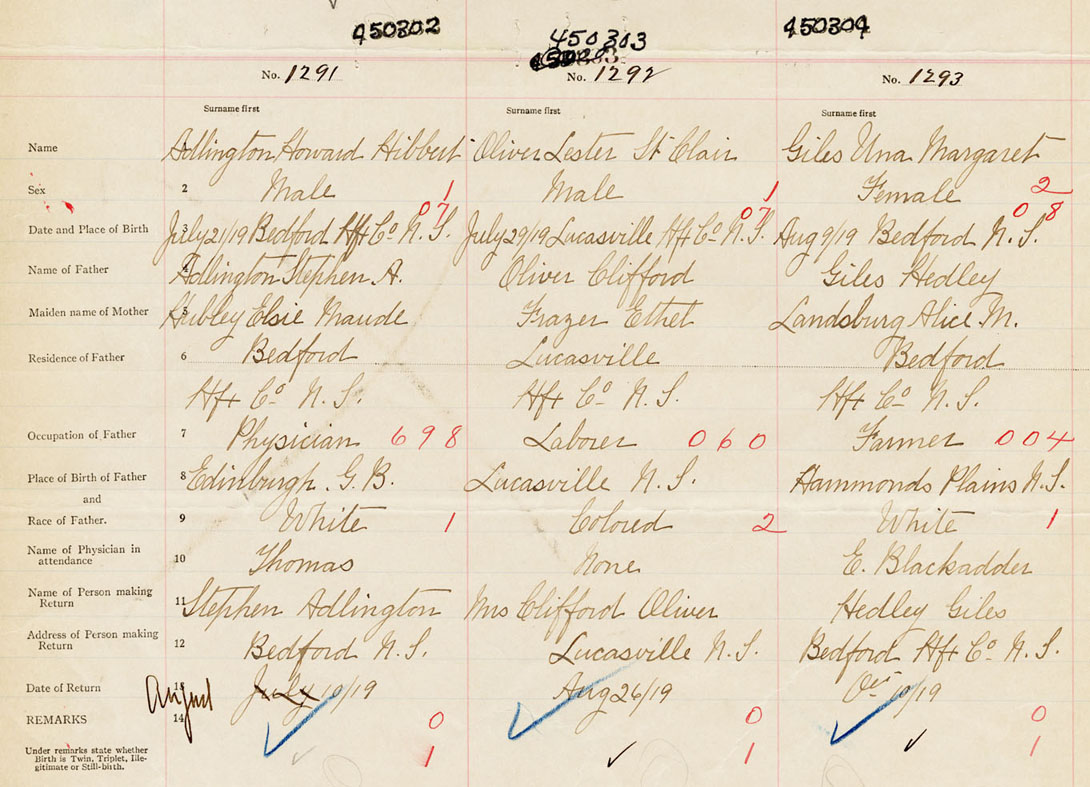 450302 450303 450304
No. 1291 No. 1292 No. 1293
Surname first Surname first Surname first
Name Adlington Howard Hibbert Oliver Lester St Clair Giles Una Margaret
Sex 2 Male 1 Male 1 Female 2
07 07 08
Date and Place of Birth 3 July 21/19 Bedford Hfx Co N.S. July 29/19 Lucasville Hfx Co N.S. Aug 9/19 Bedford N.S.
Name of Father 4 Adlington Stephen A. Oliver Clifford Giles Hedley
Maiden name of Mother 5 Hubley Elsie Maude Frazer Ethel Landsburg Alice M.
Residence of Father 6 Bedford Lucasville Bedford
Hfx Co N.S. Hfx Co N.S. Hfx Co N.S.
Occupation of Father 7 Physician 698 Laborer 060 Farmer 004
Place of Birth of Father 8 Edinburgh. G.B. Lucasville N.S. Hammonds Plains N.S.
and
Race of Father. 9 White 1 Colored 2 White 1
Name of Physician in
attendance 10 Thomas None E. Blackadder
Name of Person making
Return 11 Stephen Adlington Mrs Clifford Oliver Hedley Giles
Address of Person making
Return 12 Bedford N.S. Lucasville N.S. Bedford Hfx Co N.S.
Date of Return 13 August July 10/19 Aug 26/19 Oct 10/19
REMARKS 14 0 0 0
Under remarks state whether 1 1 1
Birth is Twin, Triplet, Ille-
gitimate or Still-birth.